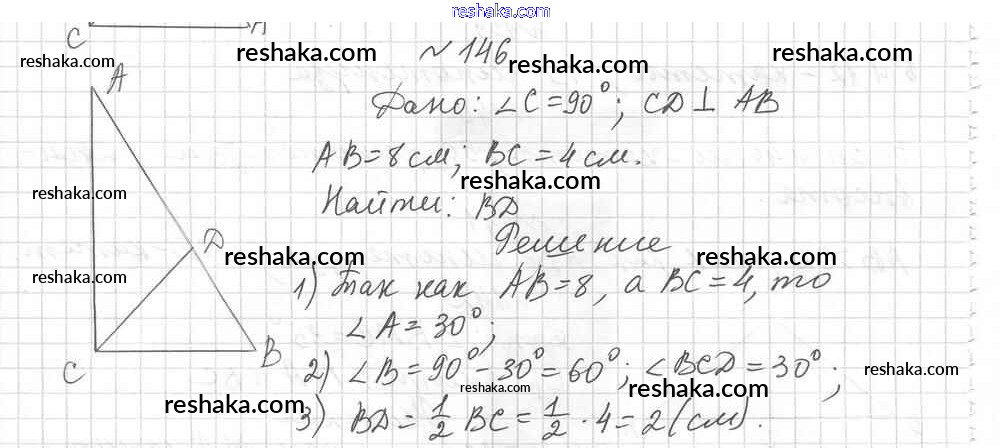 www.reshaka.com
C A
№ 146
reshaka.com reshaka.com reshaka.com
reshaka.com
A
Дано: ∠C=90°; CD⊥AB
AB=8см; BC=4см.
reshaka.com reshaka.com
Найти: BD
Решение
D
reshaka.com reshaka.com reshaka.com
reshaka.com
1) Так как AB=8, а BC=4, то
∠A=30°;
C B
2) ∠B=90°-30°=60°; ∠BCD=30°;
reshaka.com reshaka.com reshaka.com
reshaka.com
3) BD=1/2 BC=1/2·4=2(см).